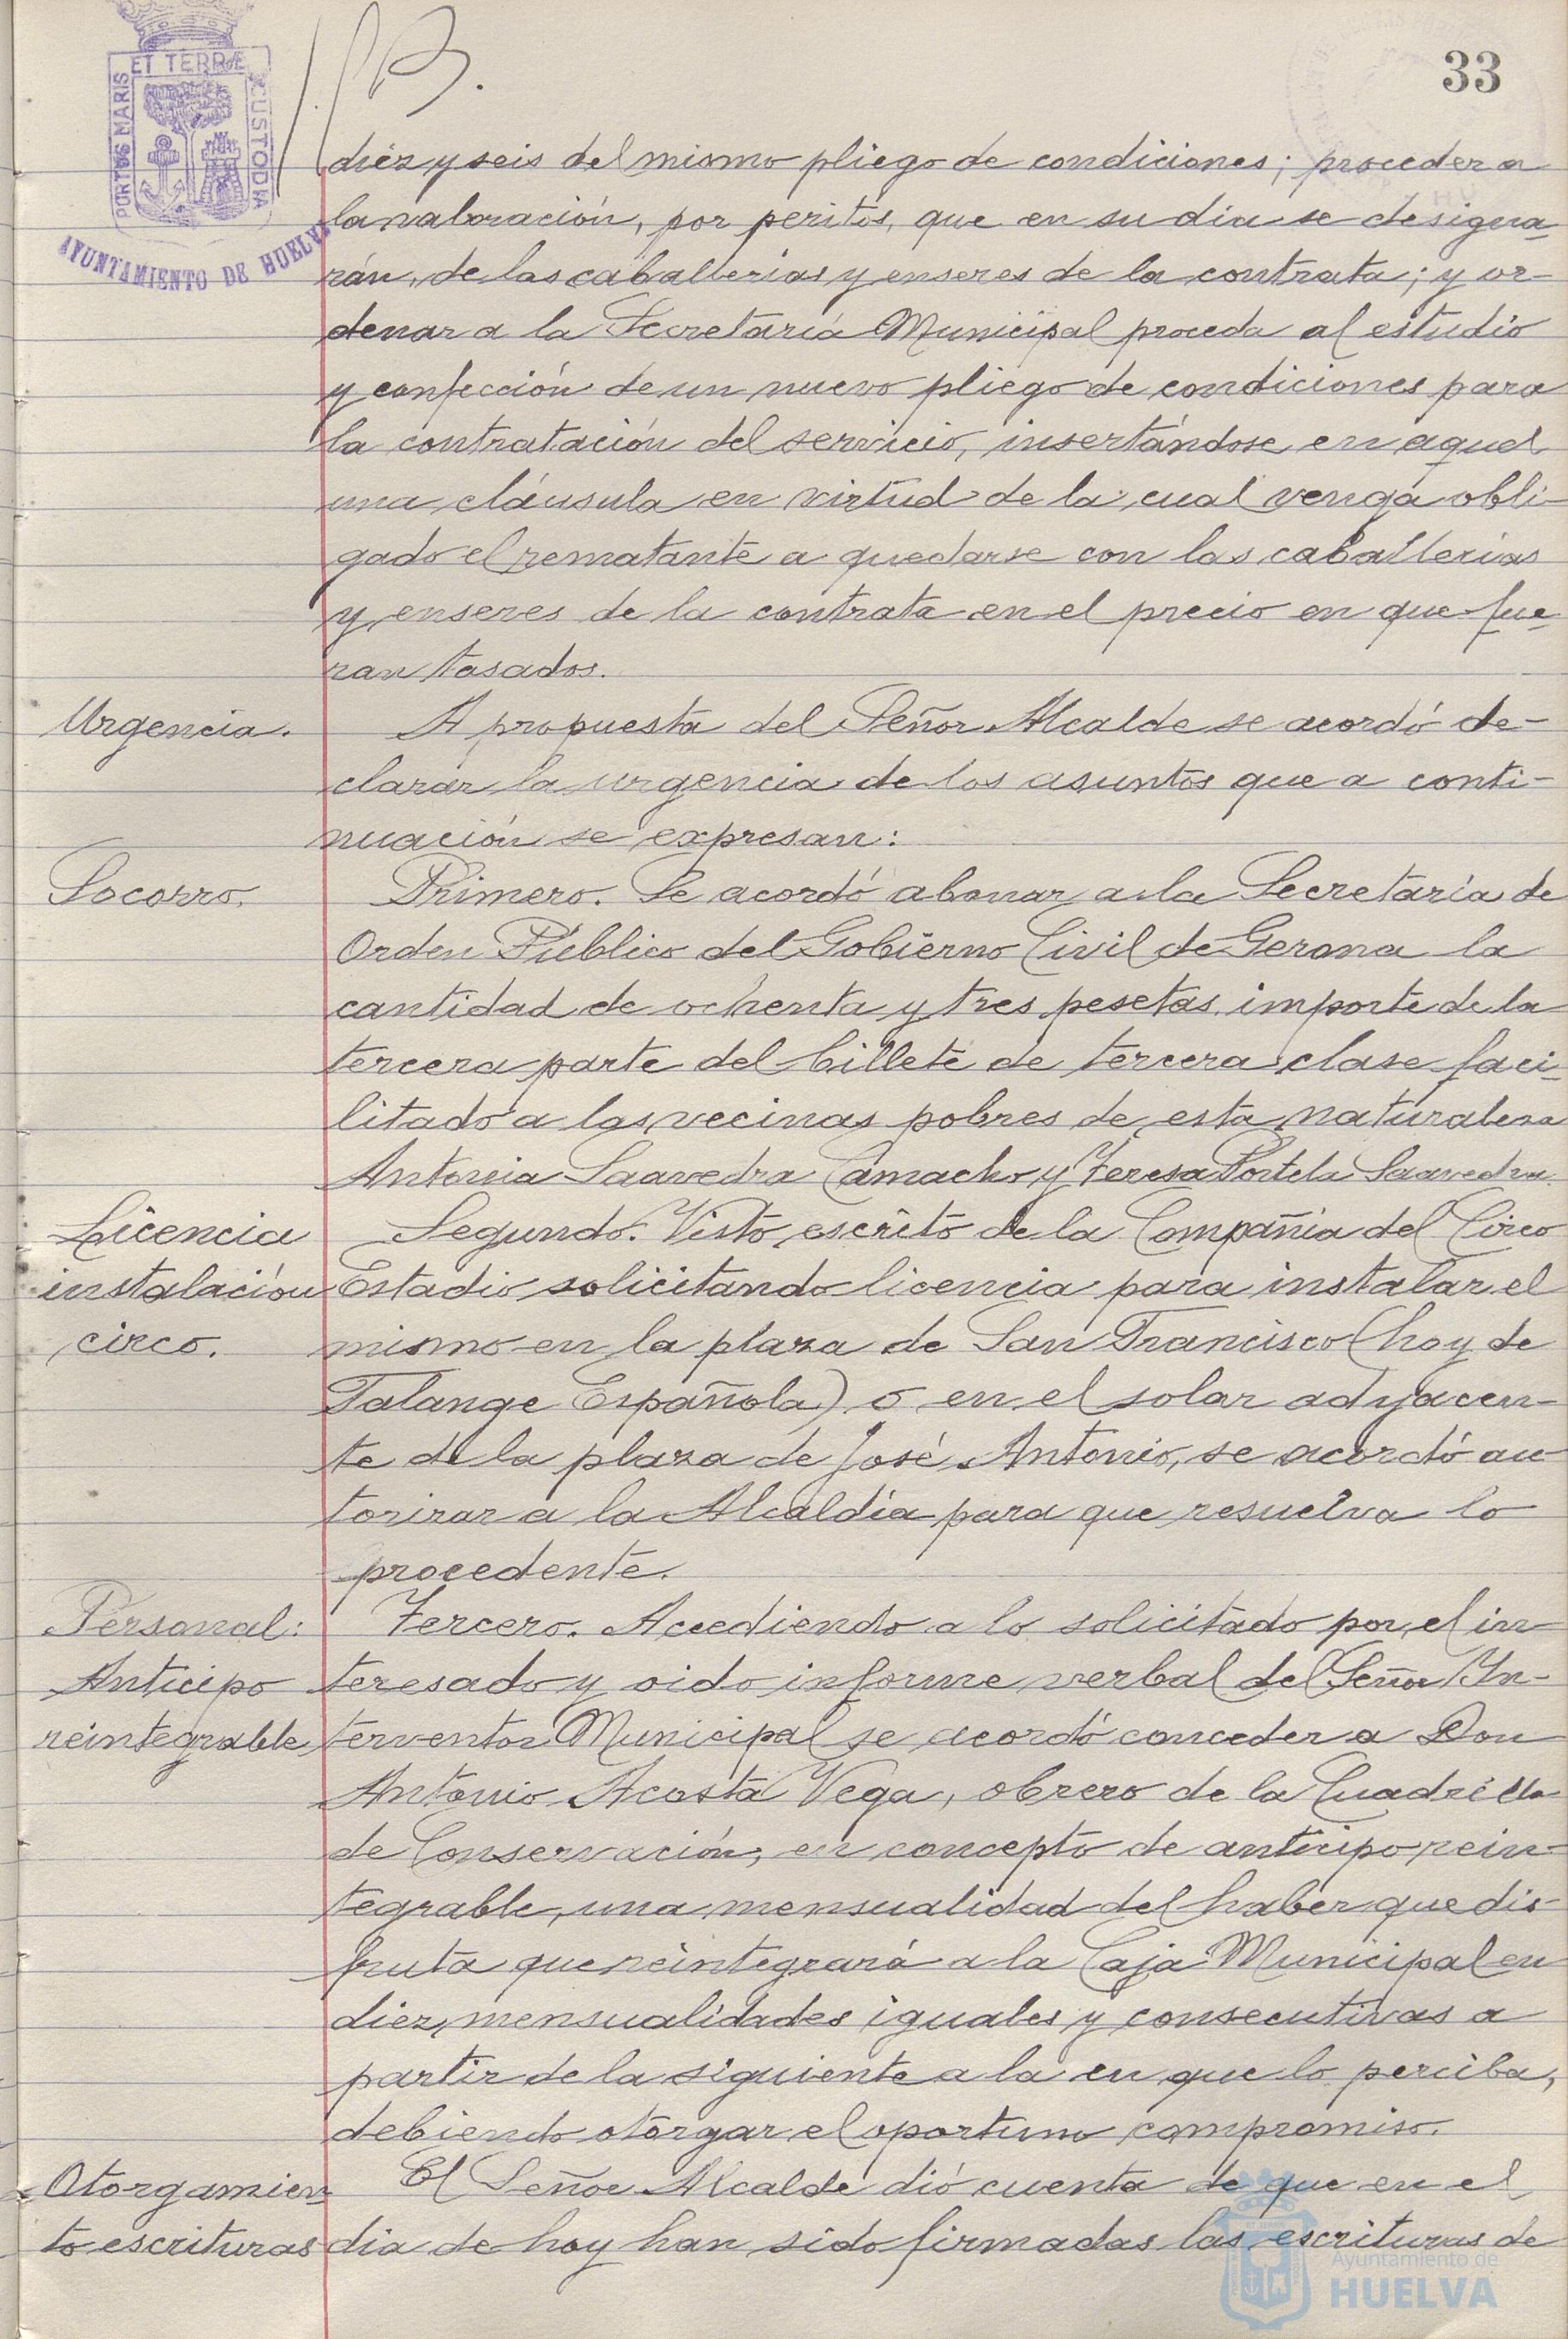 33
PORTUS MARIS ET TERRÆ CUSTODIA
AYUNTAMIENTO DE HUELVA
diez y seis del mismo pliego de condiciones; proceder a
la valoración, por peritos, que en su dia se designa-
rán, de las caballerias y enseres de la contrata; y or-
denar a la Secretaría Municipal proceda al estudio
y confección de un nuevo pliego de condiciones para
la contratación del servicio, insertándose en aquel
una cláusula en virtud de la cual venga obli-
gado el rematante a quedarse con las caballerias
y enseres de la contrata en el precio en que fue-
ran tasados.
Urgencia.
A propuesta del Señor Alcalde se acordó de-
clarar la urgencia de los asuntos que a conti-
nuación se expresan:
Socorro.
Primero. Se acordó abonar a la Secretaría de
Orden Público del Gobierno Civil de Gerona la
cantidad de ochenta y tres pesetas, importe de la
tercera parte del billete de tercera clase faci-
litado a las vecinas pobres de esta naturaleza
Antonia Saavedra Camacho y Teresa Portela Saavedra.
Licencia
instalación
circo.
Segundo. Visto escrito de la Compañia del Circo
Estadio solicitando licencia para instalar el
mismo en la plaza de San Francisco (hoy de
Falange Española) o en el solar adyacen-
te de la plaza de José Antonio, se acordó au
torizar a la Alcaldía para que resuelva lo
procedente.
Personal:
Anticipo
reintegrable
Tercero. Accediendo a lo solicitado por el in-
teresado y oido informe verbal del Señor In-
terventor Municipal se acordó conceder a Don
Antonio Acosta Vega, obrero de la Cuadrilla
de Conservación, en concepto de anticipo rein-
tegrable, una mensualidad del haber que dis-
fruta que reintegrará a la Caja Municipal en
diez mensualidades iguales y consecutivas a
partir de la siguiente a la en que lo perciba,
debiendo otorgar el oportuno compromiso.
Otorgamien-
to escrituras
El Señor Alcalde dió cuenta de que en el
dia de hoy han sido firmadas las escrituras de
Ayuntamiento de
HUELVA